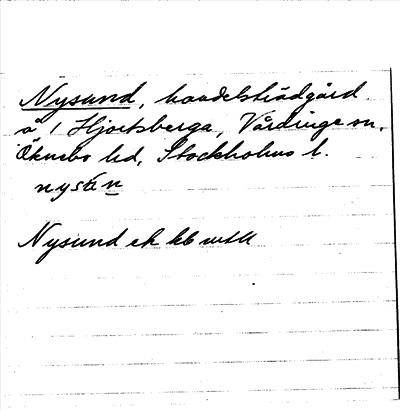 Nysund, handelsträdgård
å 1 Hjortsberga, Vårdinge sn,
Öknebo hd, Stockholms l.
nysún
Nysund ek kb